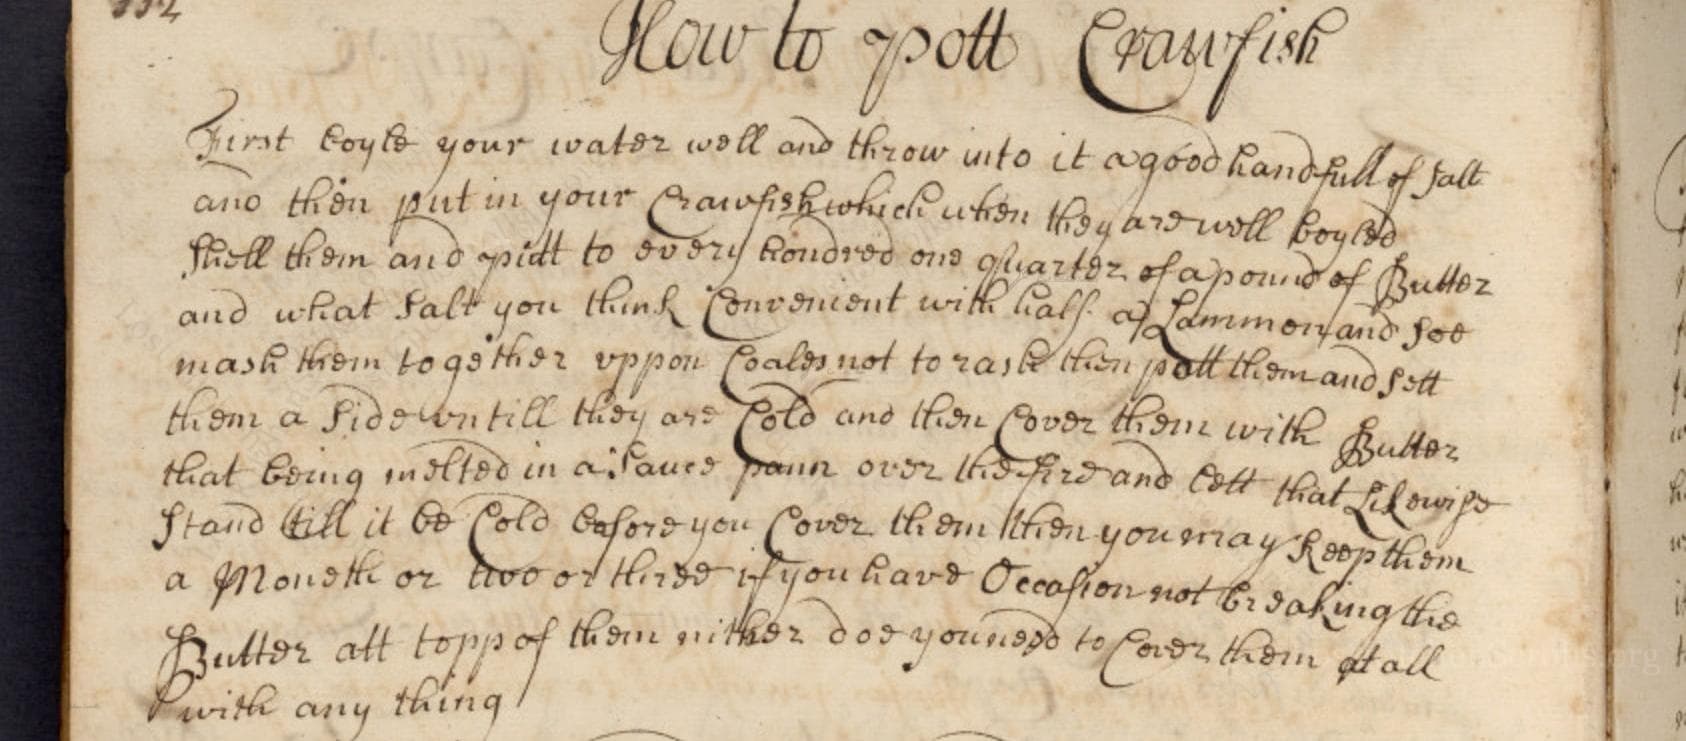 How to pott Crawfish
First boyle your water well and throw into it a good handfull of salt
and then put in your Crawfish which when they are well boyled
shell them and putt to every hondred one quarter of a pound of Butter
and what salt you think Convenient with half a Lammon and soe
mash them together vppon Coales not to rash then pott them and sett
them a side vntill they are Cold and then Cover them with Butter
that being melted in a Sauce pann over the fire and lett that Likewise
stand till it be Cold before you Cover them then you may keep them
a Moneth or two or three if you have Occasion not breaking the
Butter att topp of them nither doe you need to Cover them at all
with any thing